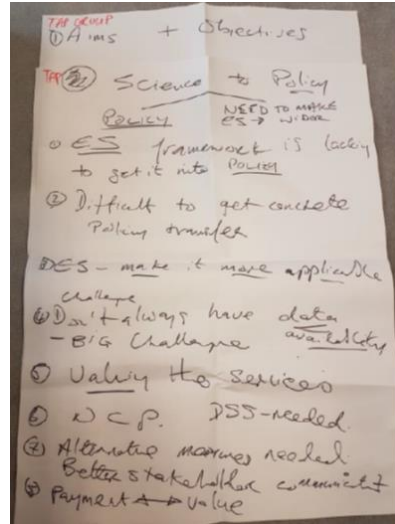 TAP GROUP
① Aims + Objectives
TAP ② Science to Policy
POLICY NEED TO MAKE
ES → WIDER
① ES framework is lacking
to get it into POLICY
② Difficult to get concrete
Policy transfer
ES - make it more applicable
Challenge
④ Don't always have data
- BIG Challenge availability
⑤ Valuing the services
⑥ NCP. DSS-needed.
⑦ Alternative needed
Better stakeholder
⑧ Payment ↔ Value